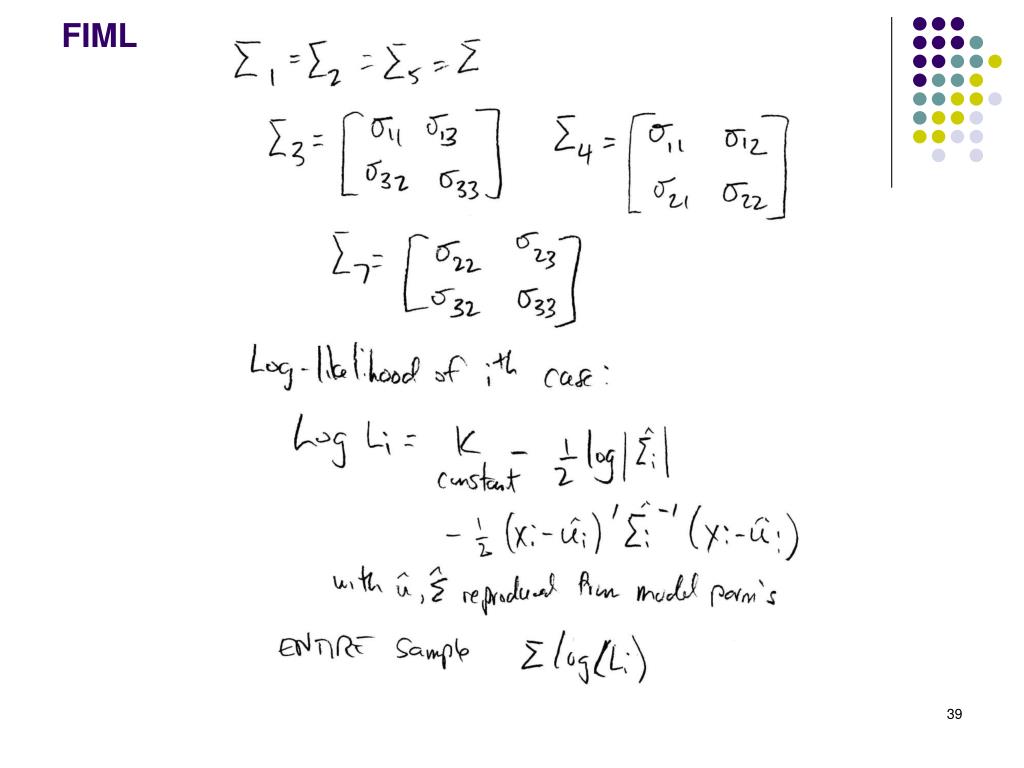 FIML
Σ₁ = Σ₂ = Σ₅ = Σ
Σ₃ = [σ₁₁ σ₁₃    Σ₄ = [σ₁₁ σ₁₂
σ₃₂ σ₃₃]    σ₂₁ σ₂₂]
Σ₇ = [σ₂₂ σ₂₃
σ₃₂ σ₃₃]
Log-likelihood of iᵗʰ case:
Log Lᵢ = K - ½ log|Σ̂ᵢ|
constant
- ½ (xᵢ - û ᵢ)' Σ̂ᵢ⁻¹ (xᵢ - û ᵢ)
with û, Σ̂ reproduced from model parm's
ENTIRE sample Σ log(Lᵢ)
39